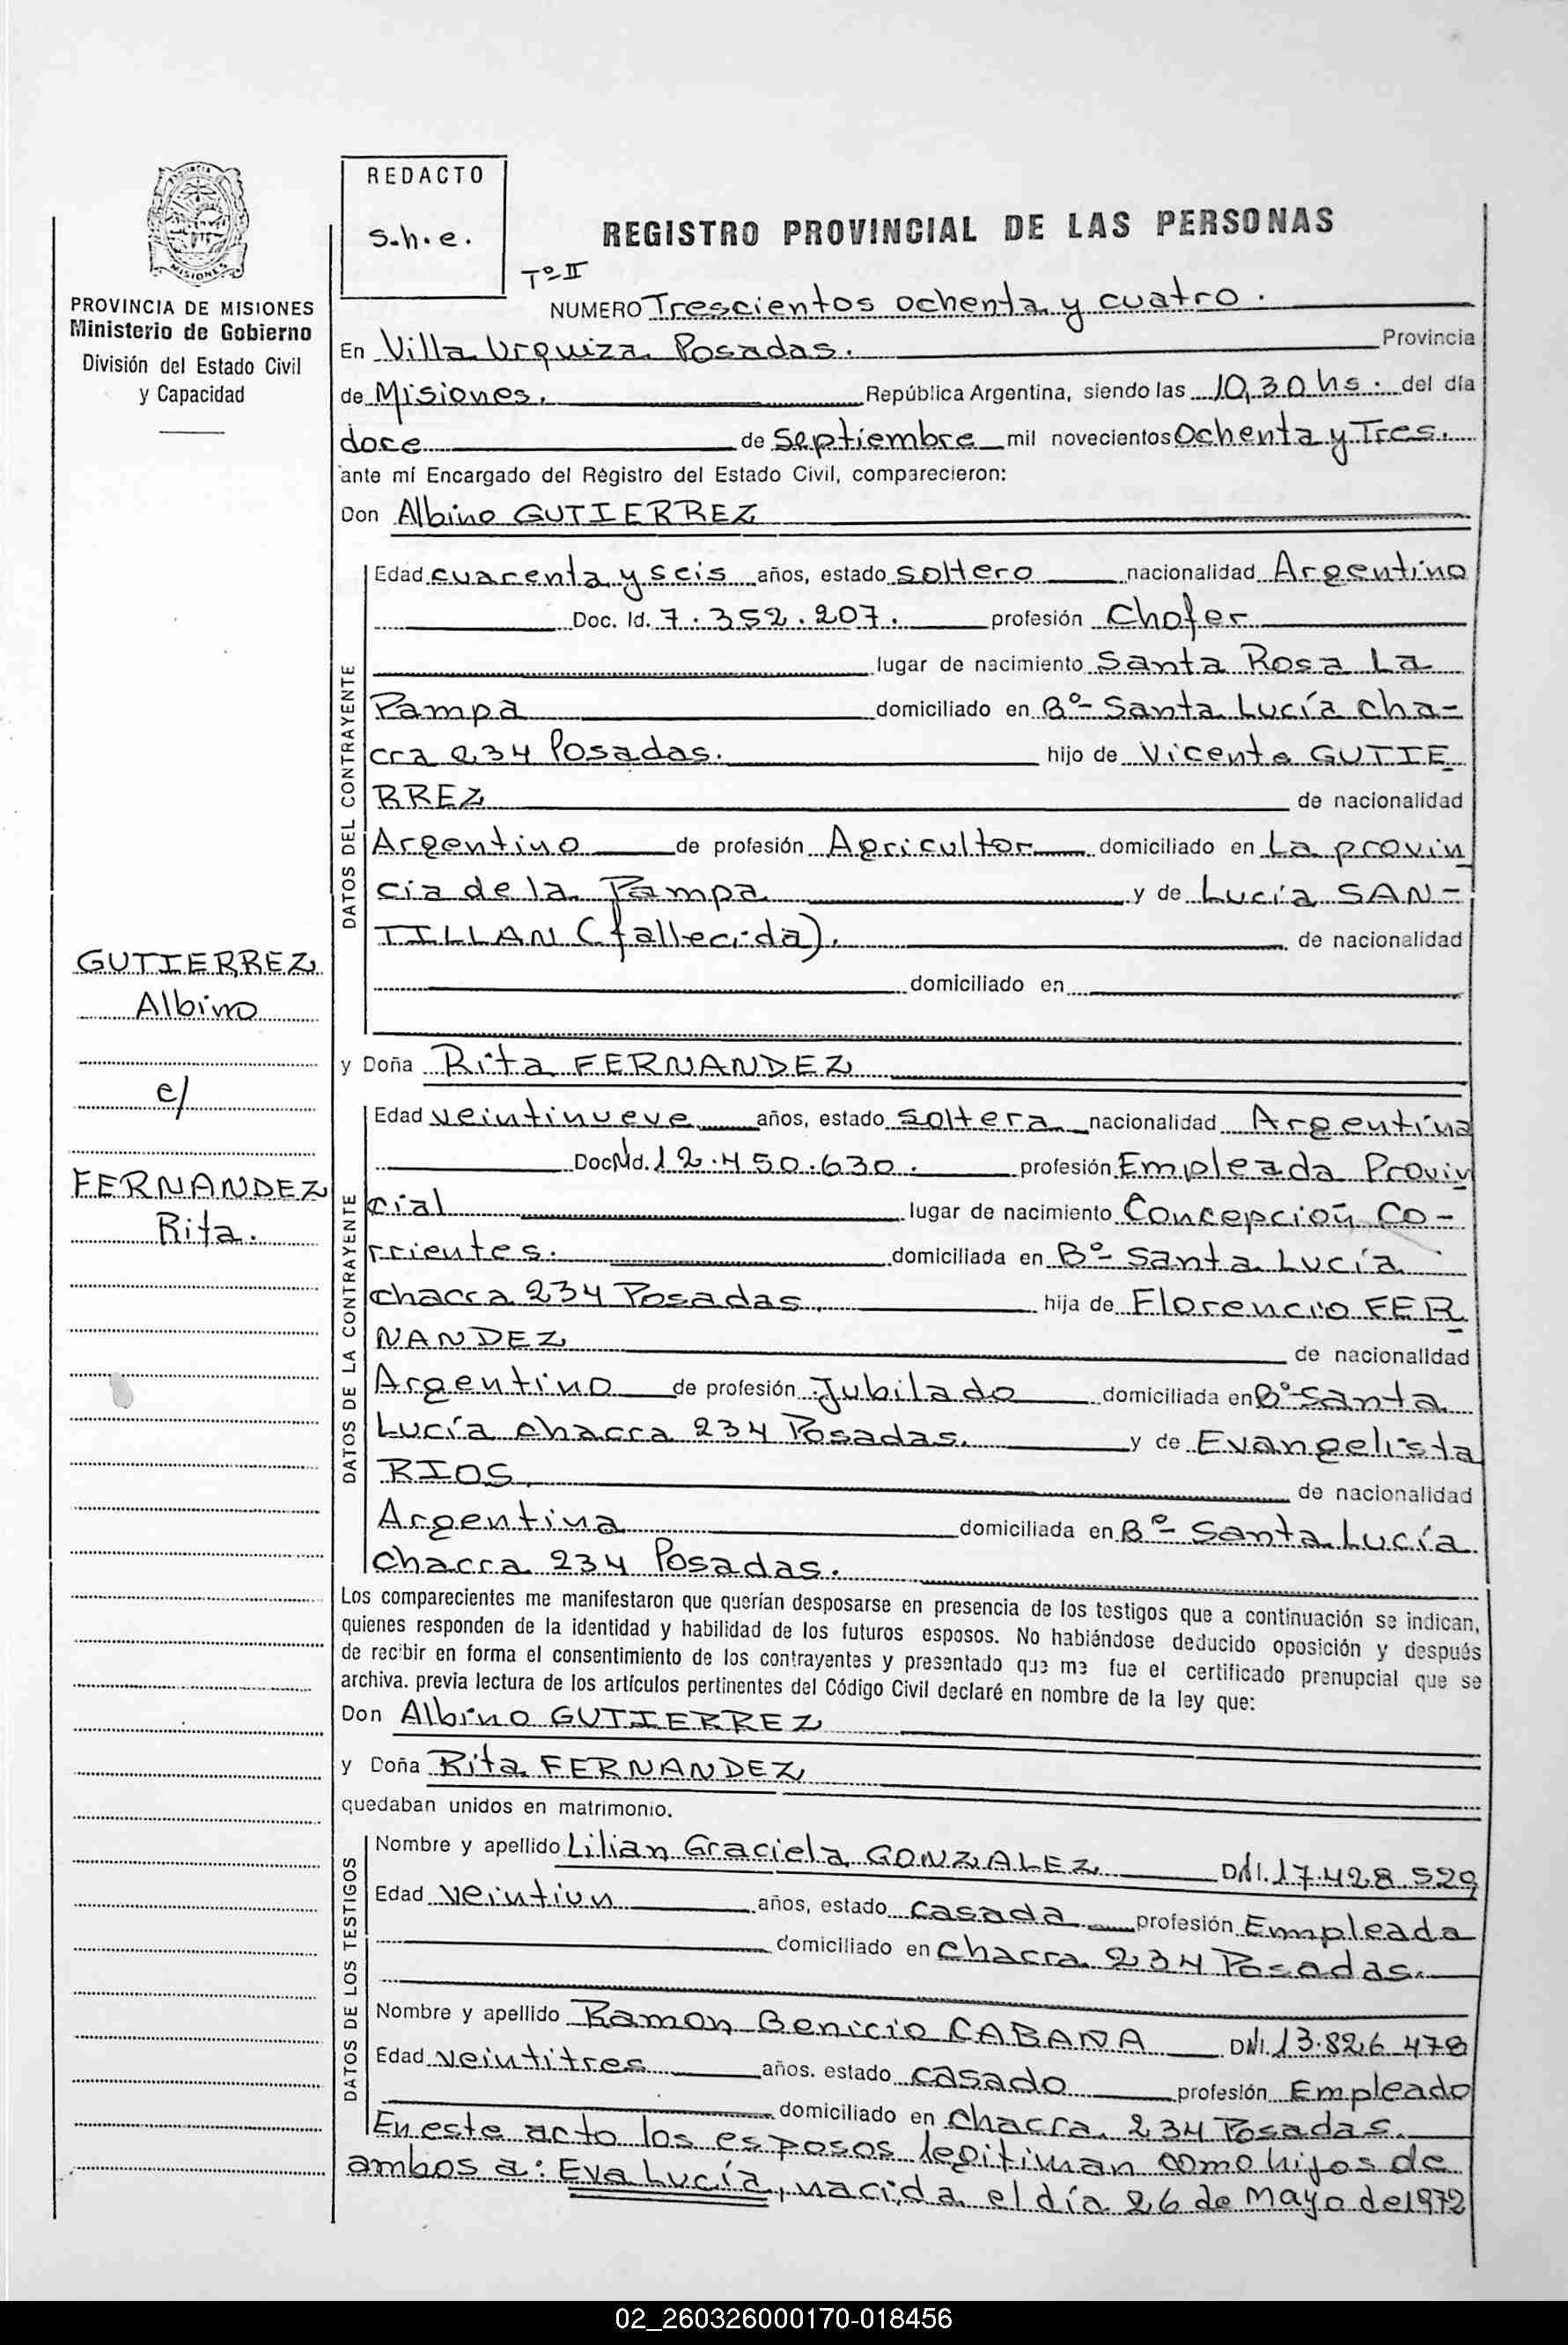 PROVINCIA
MISIONES
PROVINCIA DE MISIONES
Ministerio de Gobierno
División del Estado Civil
y Capacidad
GUTIERREZ
Albino
c/
FERNANDEZ
Rita.
REDACTO
s.h.e.
REGISTRO PROVINCIAL DE LAS PERSONAS
Tº II
NUMERO Trescientos ochenta y cuatro.
En Villa Urquiza Posadas. Provincia
de Misiones. República Argentina, siendo las 10,30 hs. del día
doce de Septiembre mil novecientos Ochenta y Tres.
ante mí Encargado del Registro del Estado Civil, comparecieron:
Don Albino GUTIERREZ
DATOS DEL CONTRAYENTE
Edad cuarenta y seis años, estado soltero nacionalidad Argentino
Doc. Id. 7.352.207. profesión Chofer
lugar de nacimiento Santa Rosa La
Pampa domiciliado en Bº Santa Lucía cha-
cra 234 Posadas. hijo de Vicente GUTIE
RREZ de nacionalidad
Argentino de profesión Agricultor domiciliado en La provin
cia de la Pampa y de Lucía SAN-
TILLAN (fallecida). de nacionalidad
domiciliado en
y Doña Rita FERNANDEZ
DATOS DE LA CONTRAYENTE
Edad veintinueve años, estado soltera nacionalidad Argentina
Doc. Nd. 12.450.630. profesión Empleada Provin
cial lugar de nacimiento Concepción Co-
rrientes. domiciliada en Bº Santa Lucía
chacra 234 Posadas. hija de Florencio FER
NANDEZ de nacionalidad
Argentino de profesión Jubilado domiciliada en Bº Santa
Lucía chacra 234 Posadas. y de Evangelista
RIOS de nacionalidad
Argentina domiciliada en Bº Santa Lucía
chacra 234 Posadas.
Los comparecientes me manifestaron que querían desposarse en presencia de los testigos que a continuación se indican,
quienes responden de la identidad y habilidad de los futuros esposos. No habiéndose deducido oposición y después
de recibir en forma el consentimiento de los contrayentes y presentado que me fue el certificado prenupcial que se
archiva. previa lectura de los artículos pertinentes del Código Civil declaré en nombre de la ley que:
Don Albino GUTIERREZ
y Doña Rita FERNANDEZ
quedaban unidos en matrimonio.
DATOS DE LOS TESTIGOS
Nombre y apellido Lilian Graciela GONZALEZ DNI. 17.428.529
Edad veintiun años, estado casada profesión Empleada
domiciliado en chacra 234 Posadas.
Nombre y apellido Ramon Benicio CABAÑA DNI. 13.826.478
Edad veintitres años. estado casado profesión Empleado
domiciliado en chacra 234 Posadas.
En este acto los esposos legitiman como hijos de
ambos a: Eva Lucía, nacida el día 26 de Mayo de 1972
02_260326000170-018456